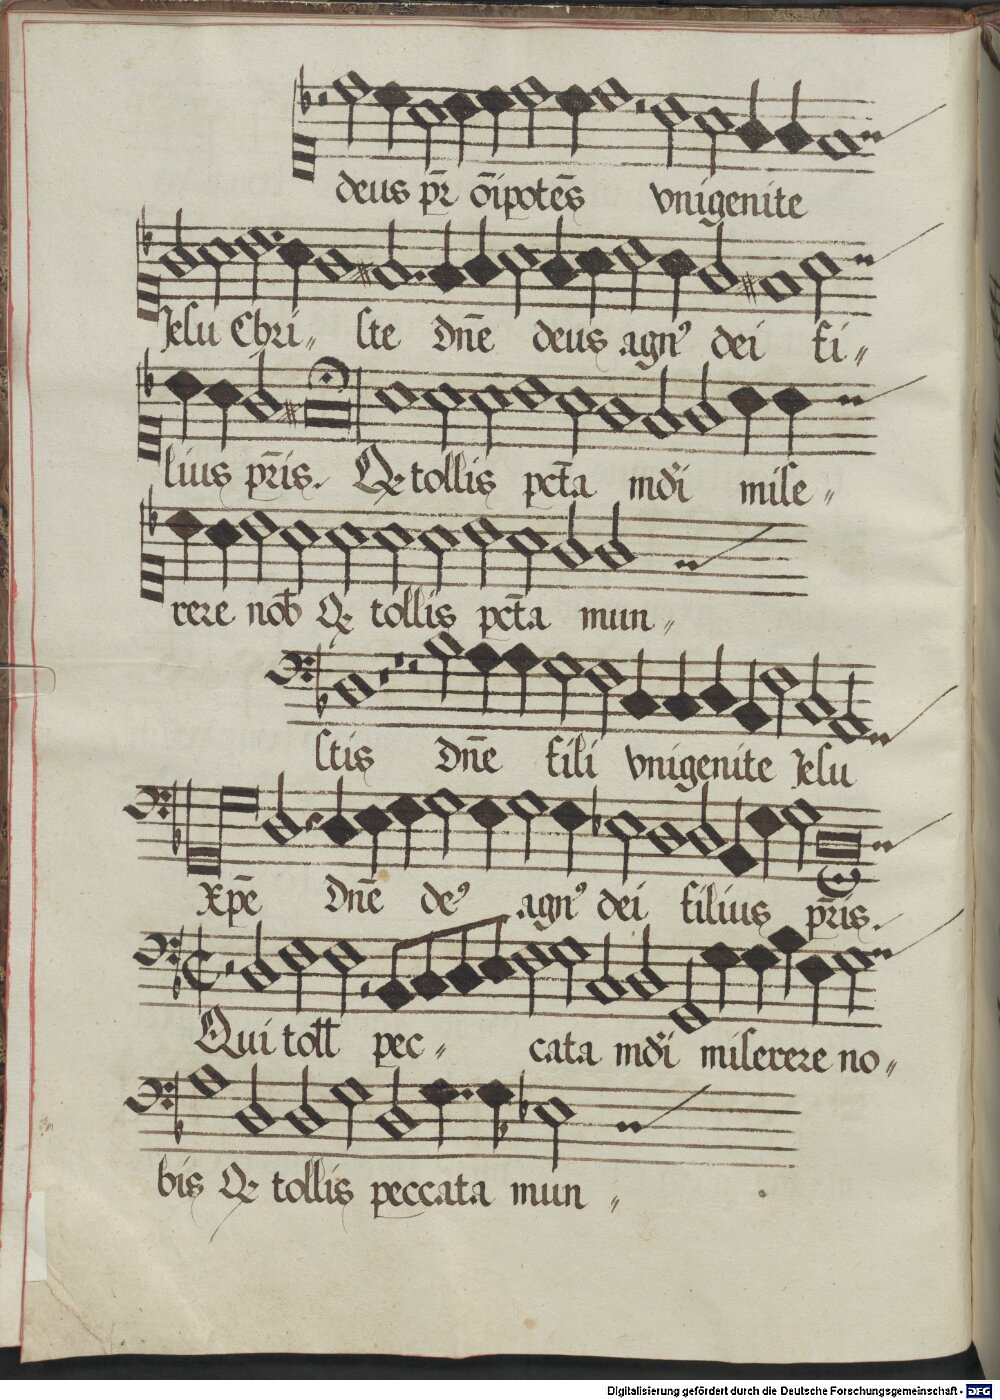 deus pr̄ oīpotēs vnigenite
Jesu Chri〃 ste dn̄e deus agnꝰ dei fi〃
lius pr̄is. Q tollis pct̄a mdi mise〃
rere nob Q tollis pct̄a mun〃
stis dn̄e fili vnigenite Jesu
xpē dn̄e deꝰ agnꝰ dei filius pr̄is.
Qui toll pec〃 cata mdi miserere no〃
bis Q tollis peccata mun〃
Digitalisierung gefördert durch die Deutsche Forschungsgemeinschaft - DFG